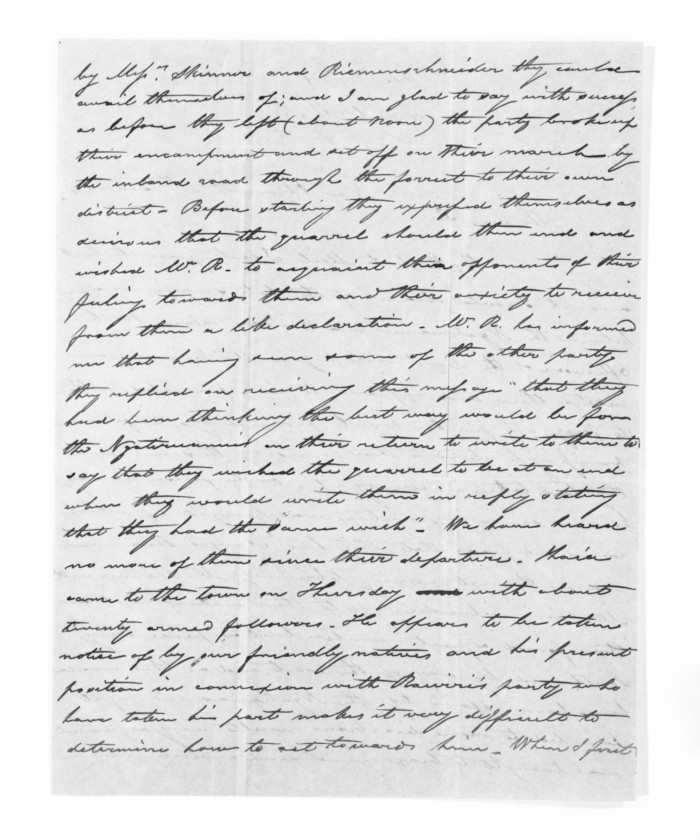 by Messrs. Skinner and Riemenschneider they could
avail themselves of; and I am glad to say with success,
as before they left (about Noon) the party broke up
their encampment and set off on their march by
the inland road through the forrest to their own
district - Before starting they expressed themselves as
desirous that the quarrel should then end and
wished Mr. R. to acquaint their opponents of their
feeling towards them and their anxiety to receive
from them a like declaration - Mr. R. has informed
me that having seen some of the other party
they replied on receiving this message "that they
had been thinking the best way would be for
the Ngatiruanuis on their return to write to them to
say that they wished the quarrel to be at an end
when they would write them in reply stating
that they had the same wish". We have heard
no more of them since their departure -
came to the town on Thursday with about
twenty armed followers - He appears to be taken
notice of by our friendly natives and his present
position in connexion with Rawiri's party who
have taken his part makes it very difficult to
determine how to act towards him - When I first